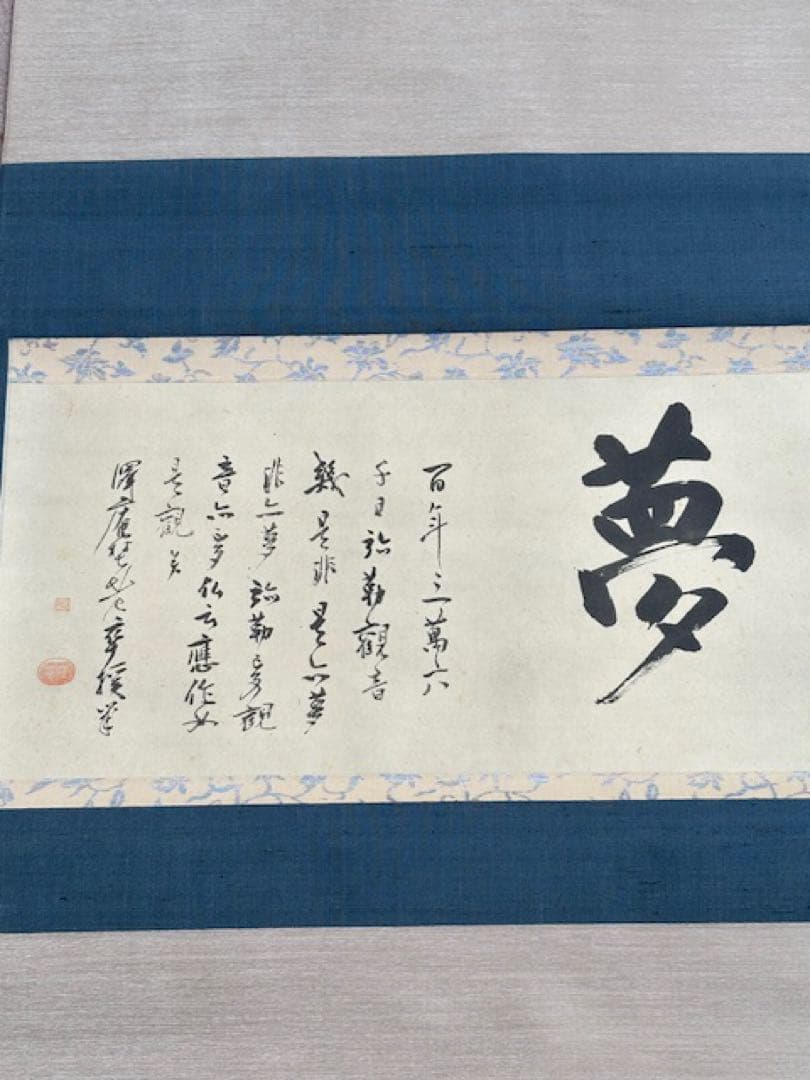 夢
百年三萬六
千日弥勒觀音
幾是非是亦夢
非亦夢弥勒夢觀
音亦夢仏云應作如
是觀矣
澤庵